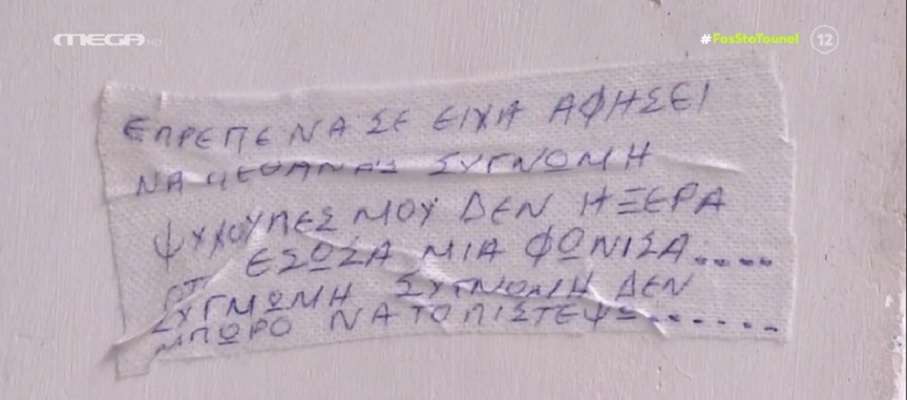 MEGA HD
#FosStoTounel 12
ΕΠΡΕΠΕ ΝΑ ΣΕ ΕΙΧΑ ΑΦΗΣΕΙ
ΝΑ ΠΕΘΑΝΑΣ ΣΥΓΝΟΜΗ
ΨΥΧΟΥΠΕΣ ΜΟΥ ΔΕΝ ΗΞΕΡΑ
ΟΤΙ ΕΣΩΣΑ ΜΙΑ ΦΩΝΙΣΑ.....
ΣΥΓΜΩΜΗ ΣΥΓΝΩΜΗ ΔΕΝ
ΜΠΩΡΟ ΝΑ ΤΟ ΠΙΣΤΕΨΩ.......